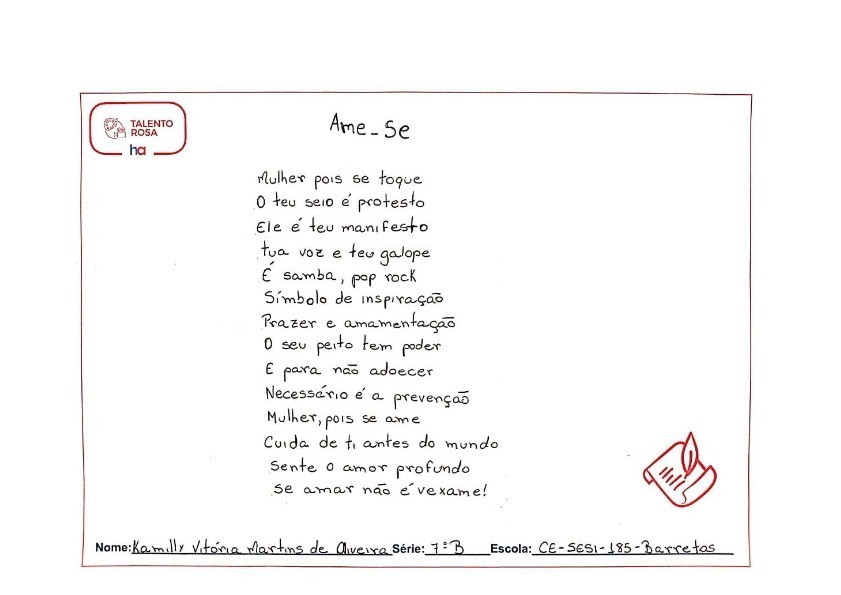 TALENTO
ROSA
ha
Ame-Se
Mulher pois se toque
O teu seio é protesto
Ele é teu manifesto
tua voz e teu galope
É samba, pop rock
Símbolo de inspiração
Prazer e amamentação
O seu peito tem poder
E para não adoecer
Necessário é a prevenção
Mulher, pois se ame
Cuida de ti antes do mundo
Sente o amor profundo
Se amar não é vexame!
Nome: Kamilly Vitória Martins de Oliveira Série: 7ºB Escola: CE-SESI-185-Barretos